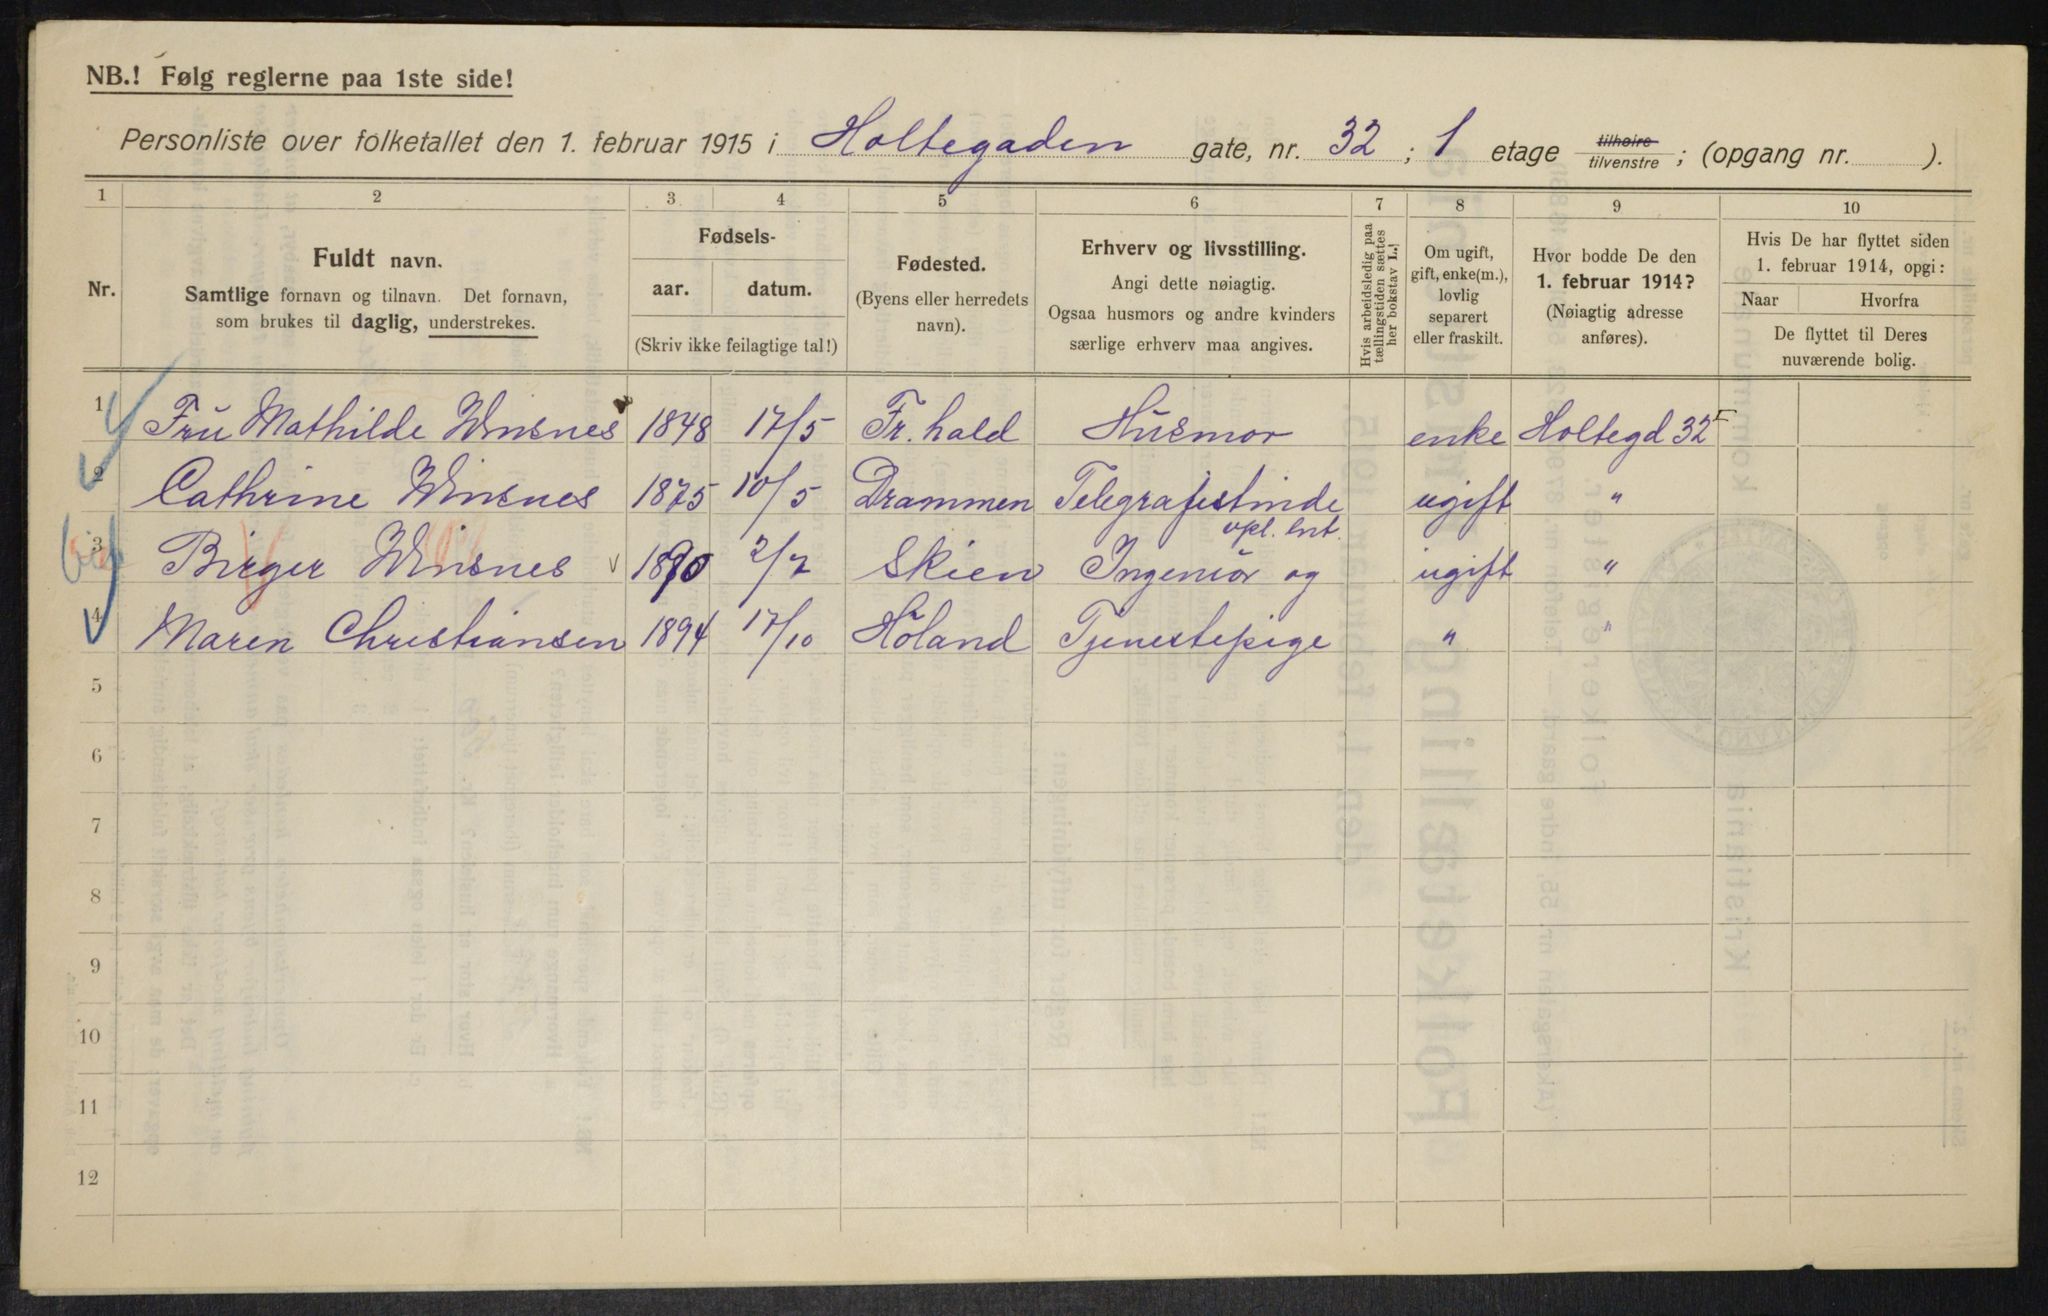 NB.! Følg reglerne paa 1ste side!
Personliste over folketallet den 1. februar 1915 i Holtegaden gate, nr. 32 ; 1 etage tilhøire tilvenstre ; (opgang nr. ).
1 2 3 4 5 6 7 8 9 10
Nr.
Fuldt navn.
Samtlige fornavn og tilnavn. Det fornavn,
som brukes til daglig, understrekes.
Fødsels-
aar. datum.
(Skriv ikke feilagtige tal!)
Fødested.
(Byens eller herredets
navn).
Erhverv og livsstilling.
Angi dette nøiagtig.
Ogsaa husmors og andre kvinders
særlige erhverv maa angives.
Hvis arbeidsledig paa
tællingstiden sættes
her bokstav L.!
Om ugift,
gift, enke(m.),
lovlig
separert
eller fraskilt.
Hvor bodde De den
1. februar 1914?
(Nøiagtig adresse
anføres).
Hvis De har flyttet siden
1. februar 1914, opgi:
Naar Hvorfra
De flyttet til Deres
nuværende bolig.
1 Fru Mathilde Winsnes 1848 17/5 Fr. hald Husmor enke Holtegd 32 I
2 Cathrine Winsnes 1875 10/5 Drammen Telegrafistinde ugift "
3 Birger Winsnes 1890 2/2 Skien Ingeniør og ugift "
4 Maren Christiansen 1894 17/10 Høland Tjenestepige " "
5
6
7
8
9
10
11
12